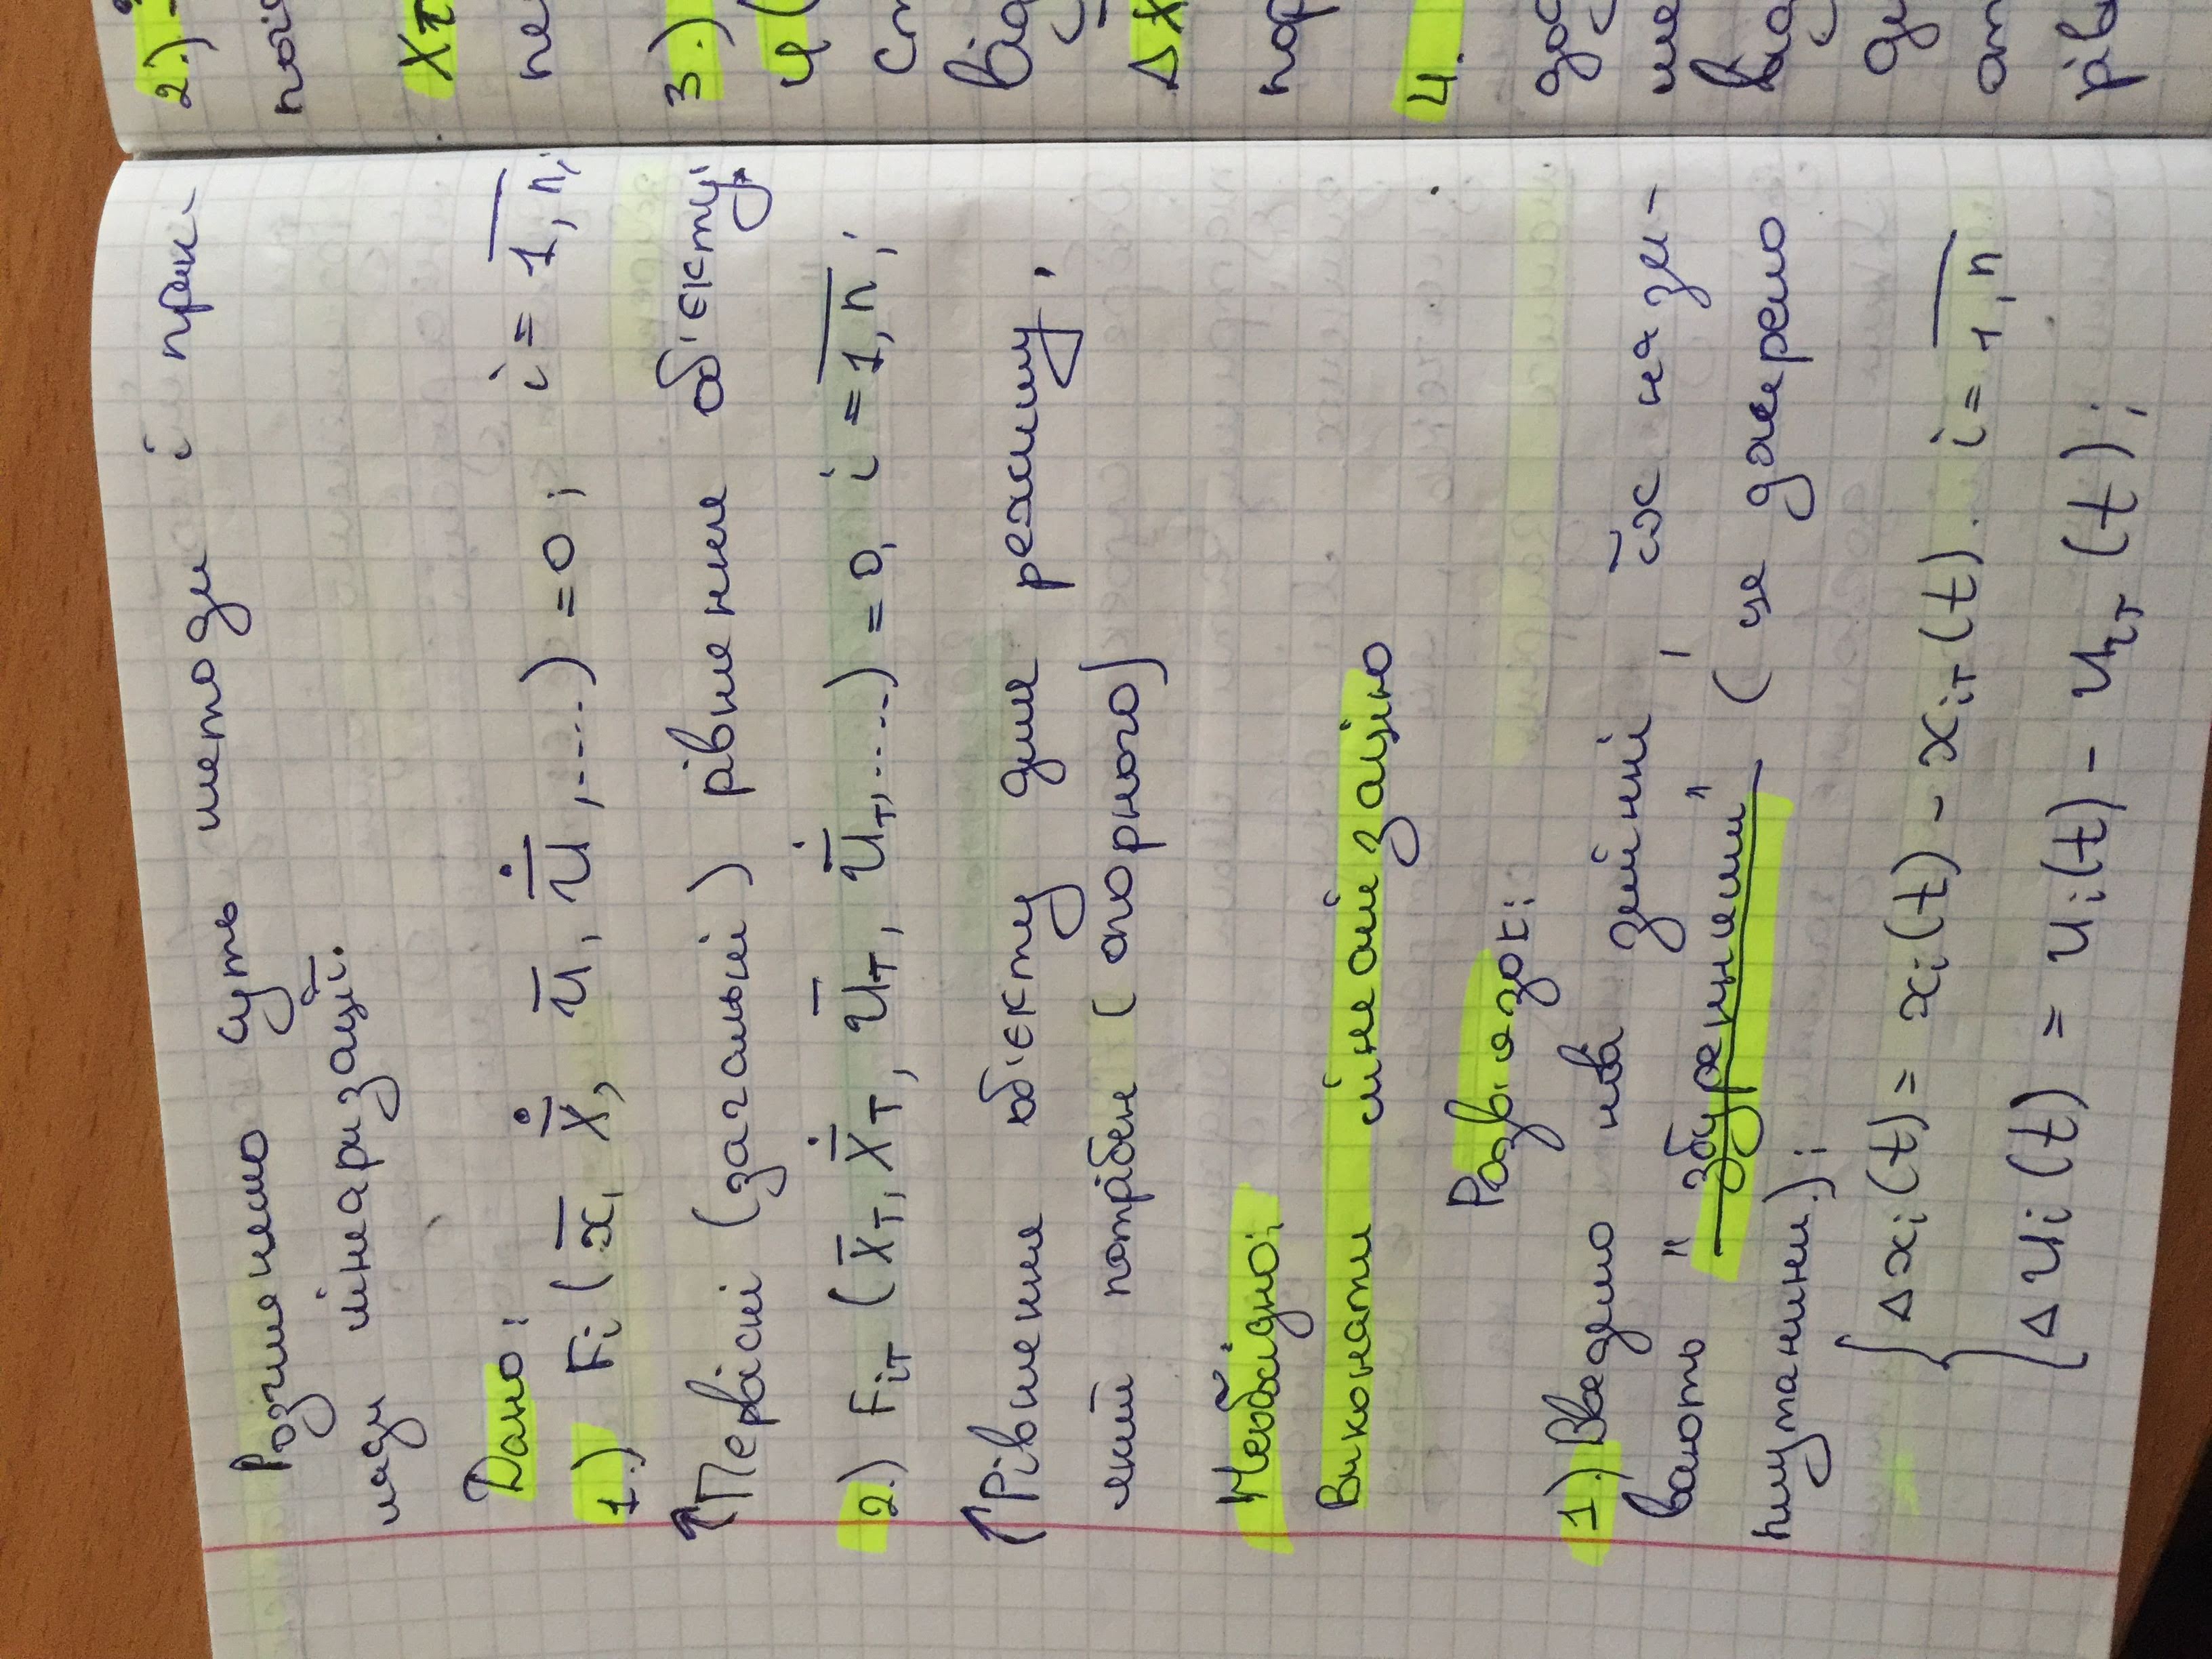 Розглянемо суть методи і прик-
лади лінеаризації.
Дано:
1.) Fi (x̄, Ẋ̄, ū, U̇̄, .....) = 0 ; i = 1, n;
↑ Первісні (загальні) рівняння об'єкту;
2.) Fiт (X̄т, Ẋ̄т, Ūт, U̇̄т, .....) = 0, i = 1, n ;
↑ Рівняння об'єкту для режиму,
який потрібен (опорного)
Необхідно:
Виконати лінеаізацію
Розв'язок:
1.) Введемо нові змінні, їх нази-
вають "збуреннями" (це джерело
плутанини.);
Δxi(t) = xi(t) - xiт(t). i = 1, n
Δui(t) = ui(t) - uiт(t);
2.)
3.)
4.